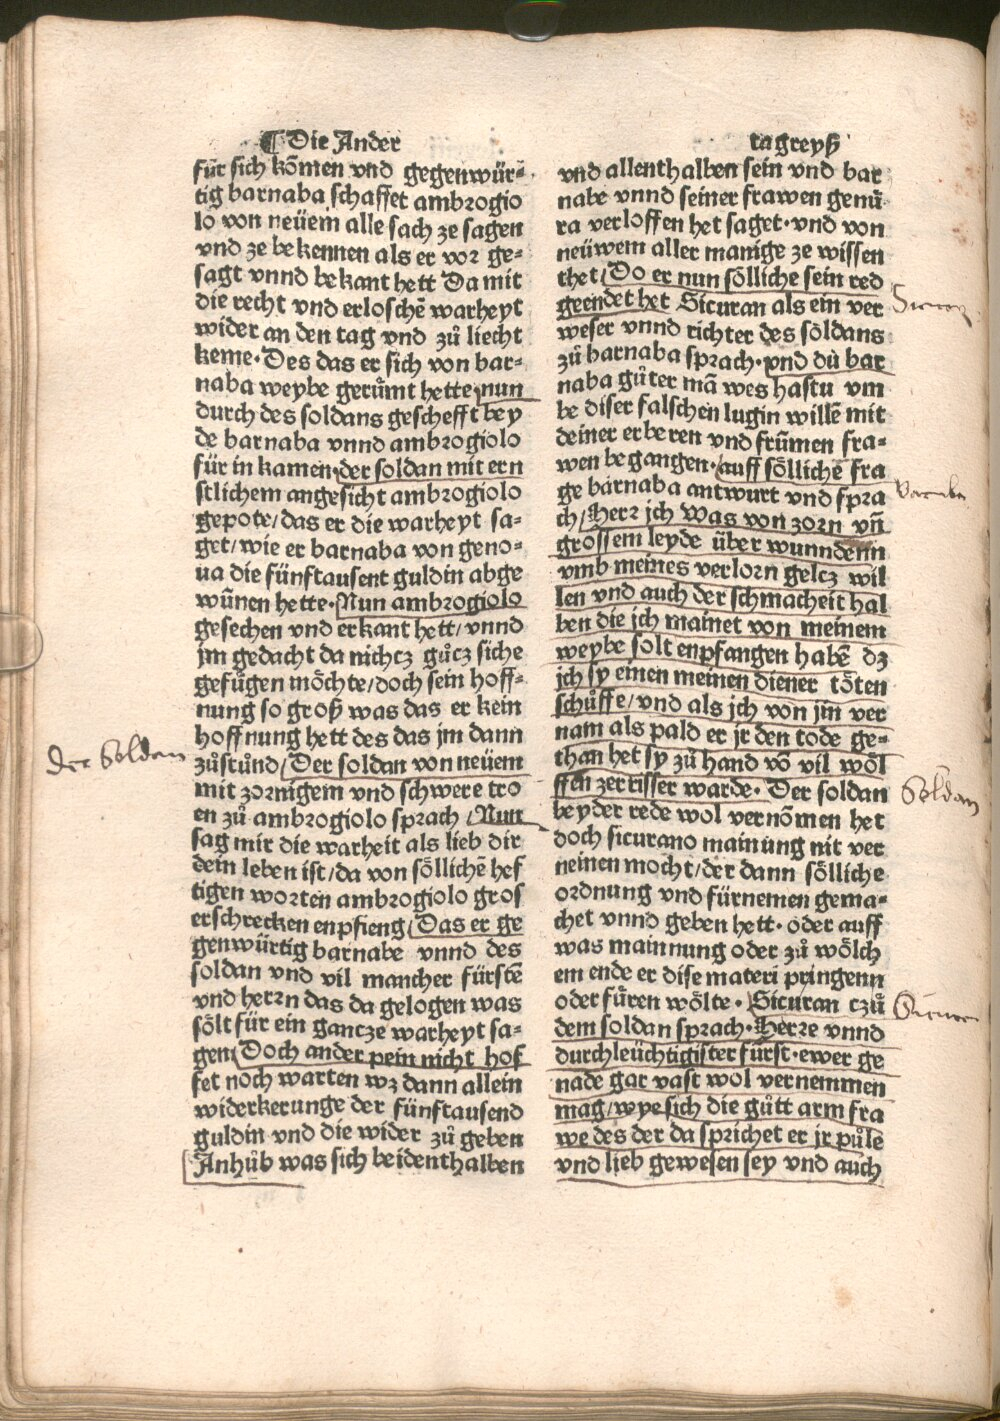 ¶ Die Ander
für sich kõmen vnd gegenwür⸗
tig barnaba schaffet ambrogio
lo von neüem alle sach ze sagen
vnd ze bekennen als er vor ge⸗
sagt vnnd bekant hett Da mit
die recht vnd erloschẽ warheyt
wider an den tag vnd zů liecht
keme· Des das er sich von bar⸗
naba weybe gerümt hette· nun
durch des soldans gescheft bey
de barnaba vnnd ambrogiolo
für in kamen· der soldan mit ern
stlichem angesicht ambrogiolo
gepote/ das er die warheyt sa⸗
get/ wie er barnaba von geno⸗
ua die fünftausent guldin abge
wũnen hette· Nun ambrogiolo
gesechen vnd erkant hett/ vnnd
jm gedacht da nichcz gůcz siche
gefügen möchte/ doch sein hoff⸗
nung so groß was das er kein
hoffnung hett des das jm dann
zůstůnd/ Der soldan von neüem
mit zornigem vnd schwere tro
en zů ambrogiolo sprach/ Nun
sag mir die warheit als lieb dir
dein leben ist/ da von söllichẽ hef
tigen worten ambrogiolo gros
erschrecken enpfieng/ Das er ge
genwürtig barnabe vnnd des
soldan vnd vil mancher fürstẽ
vnd herrn das da gelogen was
sölt für ein gantze warheyt sa⸗
gen/ Doch ander pein nicht hof
fet noch warten wz dann allein
widerkerunge der fünftausend
guldin vnd die wider zů geben
Anhůb was sich beidenthalben
der Soldan
tagreyß
vnd allenthalben sein vnd bar
nabe vnnd seiner frawen genü
ra verloffen het saget· vnd von
neüwem aller manige ze wissen
thet/ Do er nun sölliche sein red
geendet het Sicuran als ein ver
weser vnnd richter des soldans
zů barnaba sprach· vnd dů bar
naba gůter mã wes hastu vm
be diser falschen lugin willẽ mit
deiner erberen vnd frũmen fra⸗
wen begangen· auff söllichẽ fra
ge barnaba antwurt vnd spra
ch/ Herr jch was von zorn vñ
grossem leyde über wunndenn
vmb meines verlorn gelcz wil
len vnd auch der schmacheit hal
ben die jch mainet von meinem
weybe solt enpfangen habẽ dz
jch sy einen meinen diener töten
schůffe/ vnd als jch von jm ver
nam als pald er jr den tode ge⸗
than het sy zů hand võ vil wöl
ffen zerrisser warde· Der soldan
beyder rede wol vernõmen het
doch sicurano mainung nit ver
neinen mocht/ der dann sölliche
ordnung vnd fürnemen gema⸗
chet vnnd geben hett· oder auff
was mainnung oder zů wölch
em ende er dise materi pringenn
oder füren wölte· Sicuran czů
dem soldan sprach· Herre vnnd
durchleüchtigister fürst· ewer ge
nade gar vast wol vernemmen
mag/ wye sich die gůtt arm fra
we des der da sprichet er jr půle
vnd lieb gewesen sey vnd auch
Barnaba
Soldan
Sicuran